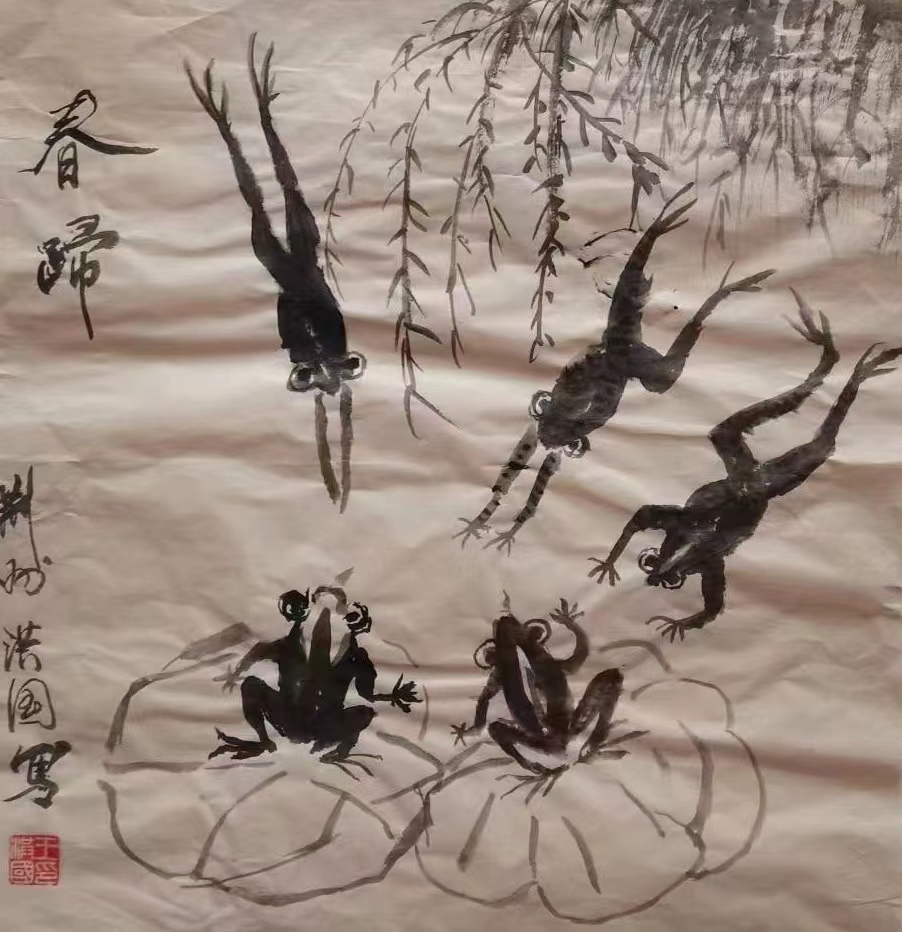 春歸
荆州洪国寫
王印
洪國